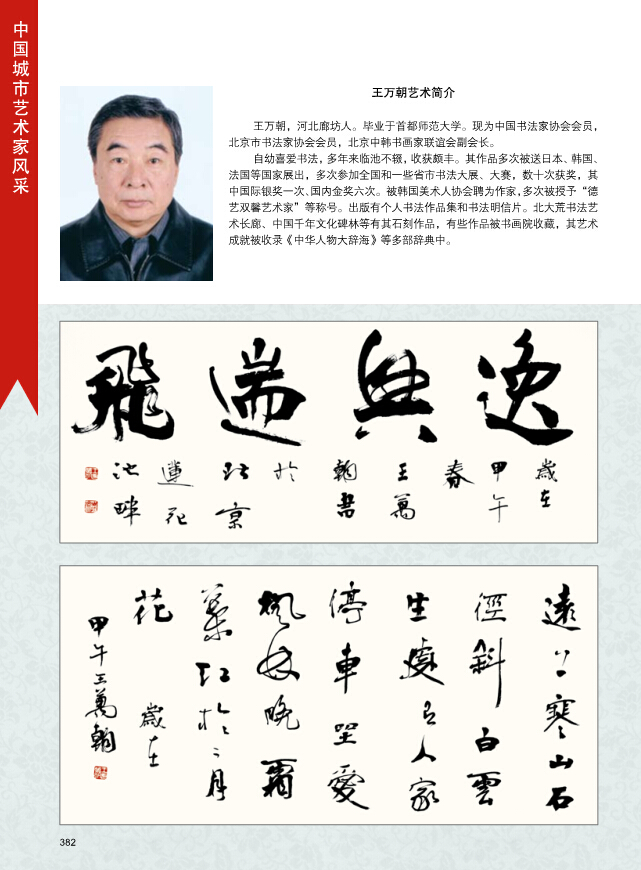 中国城市艺术家风采
王万朝艺术简介
王万朝，河北廊坊人。毕业于首都师范大学。现为中国书法家协会会员，
北京市书法家协会会员，北京中韩书画家联谊会副会长。
自幼喜爱书法，多年来临池不辍，收获颇丰。其作品多次被送日本、韩国、
法国等国家展出，多次参加全国和一些省市书法大展、大赛，数十次获奖，其
中国际银奖一次、国内金奖六次。被韩国美术人协会聘为作家，多次被授予“德
艺双馨艺术家”等称号。出版有个人书法作品集和书法明信片。北大荒书法艺
术长廊、中国千年文化碑林等有其石刻作品，有些作品被书画院收藏，其艺术
成就被收录《中华人物大辞海》等多部辞典中。
逸興遄飛
歲在
甲午
春
王萬
朝書
於
北京
蓮花
池畔
遠上寒山石
徑斜白雲
生處有人家
停車坐愛
楓林晚霜
葉紅於二月
花 歲在
甲午王萬朝
382